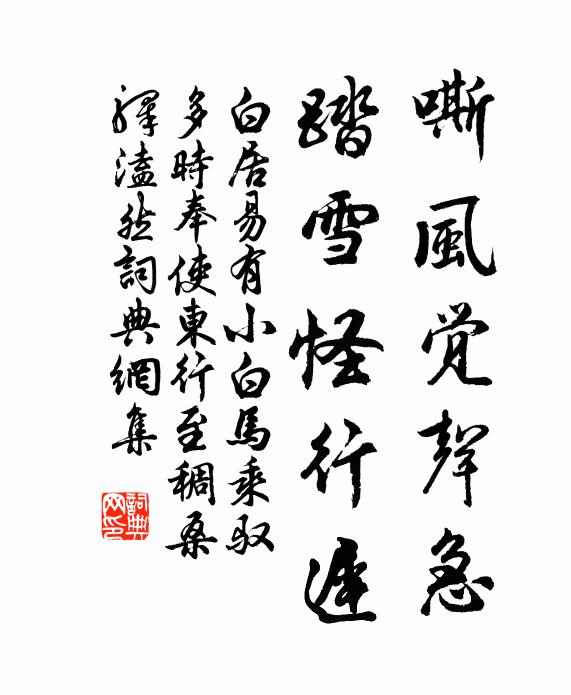 嘶風觉聲急
踏雪怪行遲
白居易有小白馬乘馭
多時奉使東行至稠桑
驛溘然詞典網集
詞典
网印